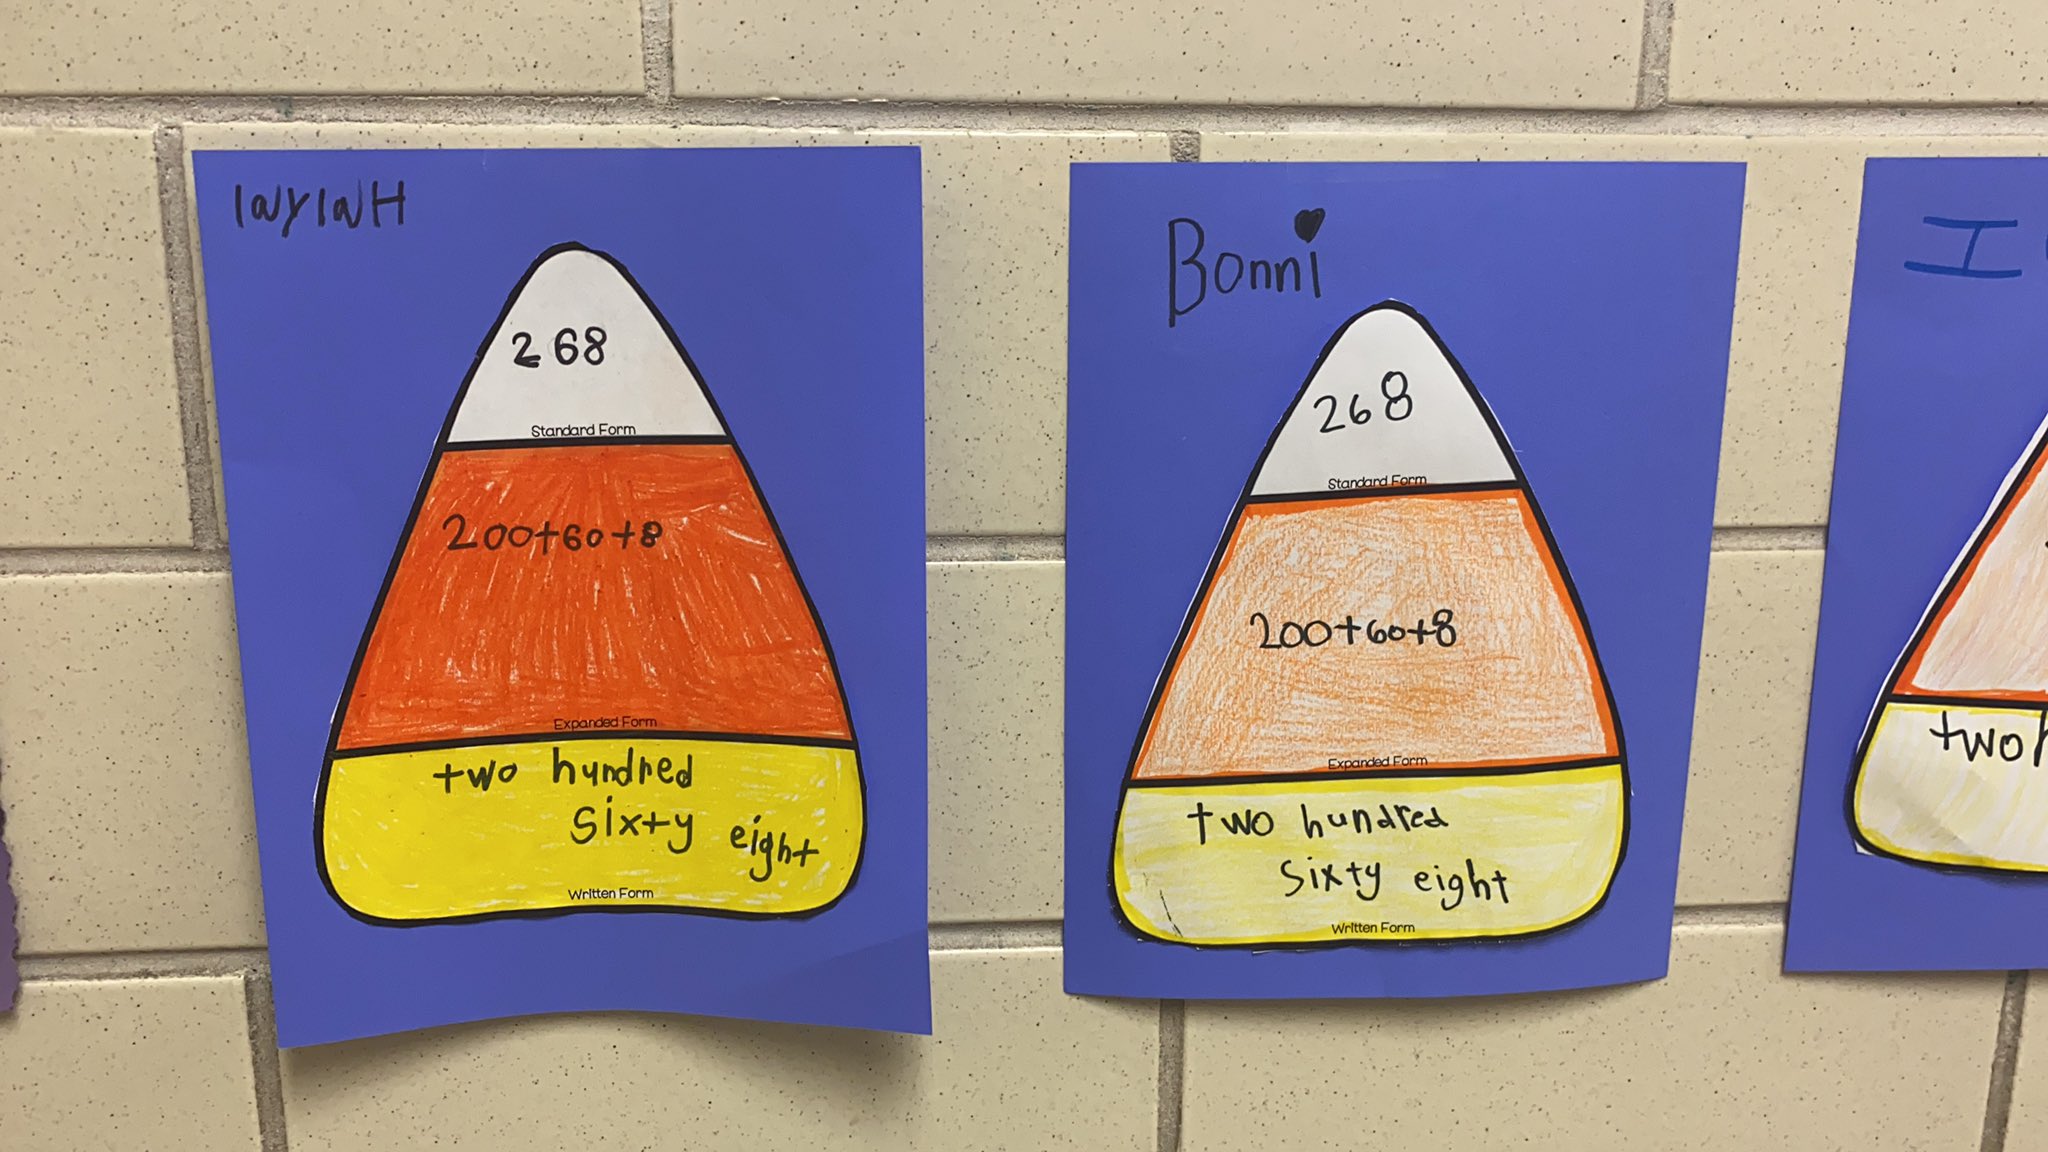 laylaH
268
Standard Form
200+60+8
Expanded Form
two hundred
sixty eight
Written Form
Bonni
268
Standard Form
200+60+8
Expanded Form
two hundred
sixty eight
Written Form
I
two